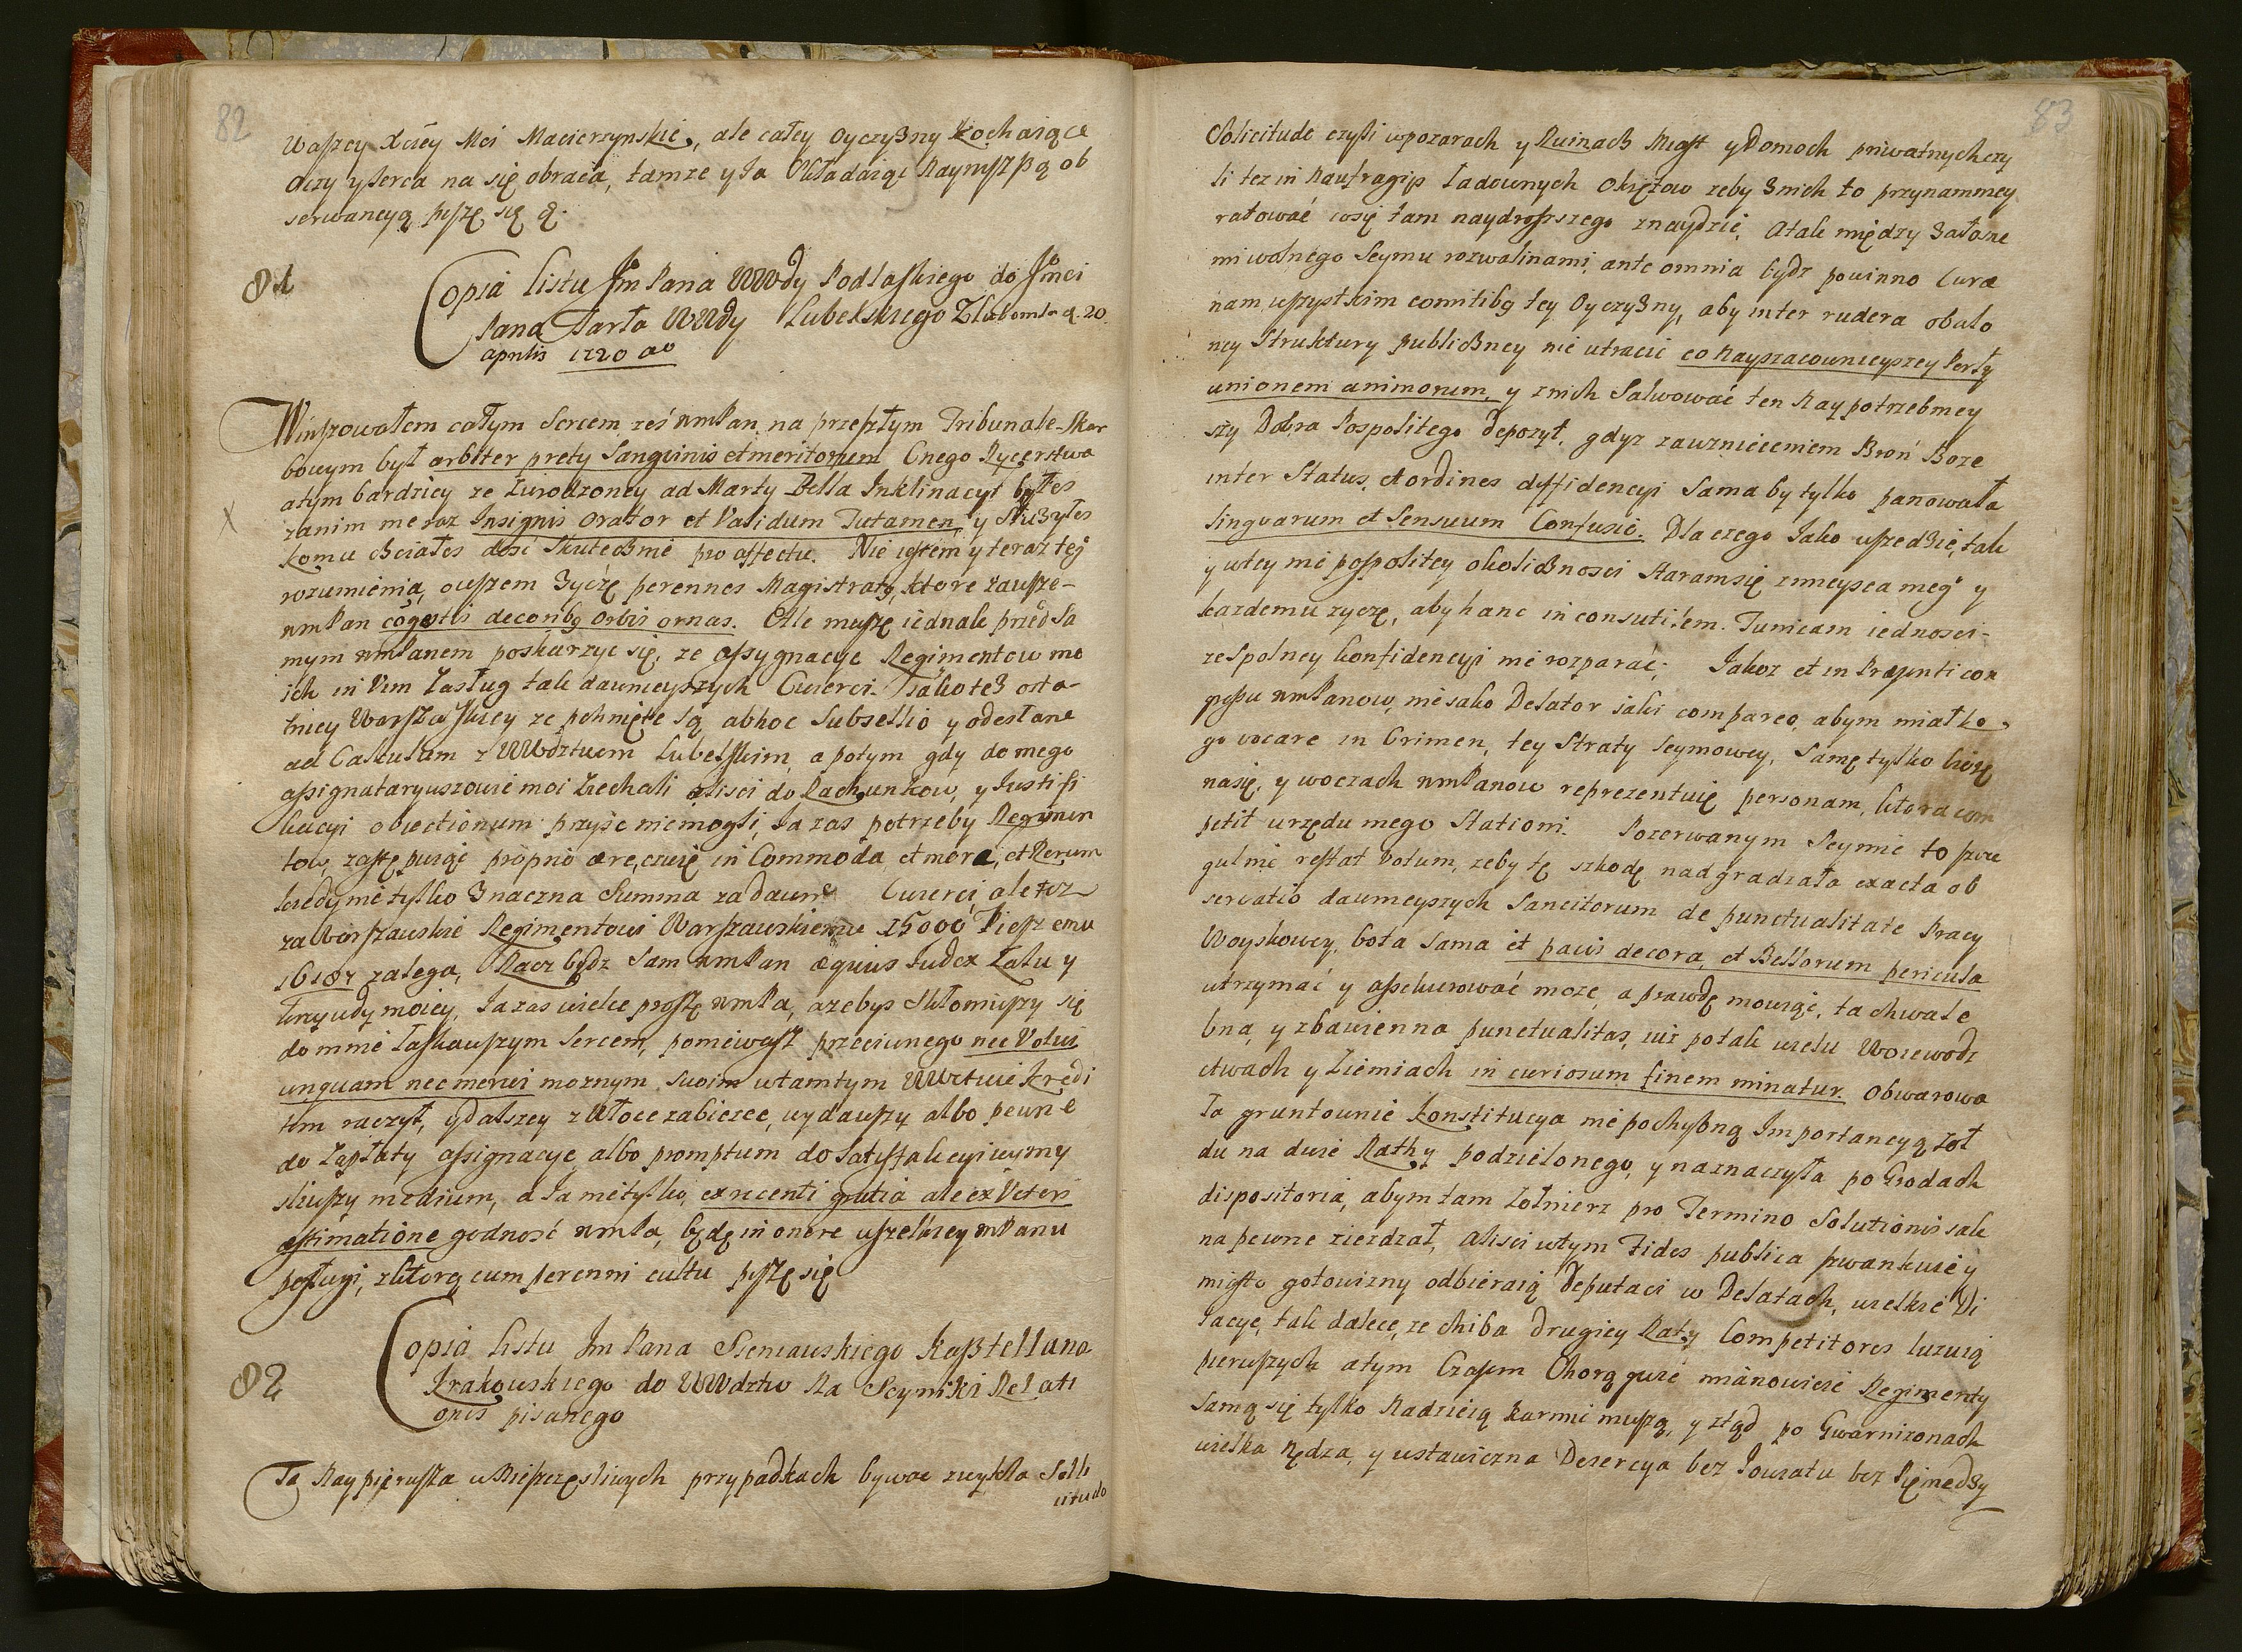 82
Waszey Xcey Mci Macierzynskie, ale całey Oyczyzny kochaiące
oczy y serca na się obraca, tamze y Ja Okładaiąc Naynisz szą ob
serwancyą piszę się q.
81
Copia Listu Jm Pana WWdy Podlaskiego do Jmci
Pana Tarła WWdy Lubelskiego Z Lubomla d. 20
aprilis 1720 ao
Winszowałem całym Sercem zes WmPan na przeszłym Tribunale Skar
bowym był arbiter prety Sangvinis et meritorum Cnego Rycerstwa
atym bardziey ze Zurodzoney ad Marty Bella Inklinacyi byłes
X zanim nie raz Insignis Orator et Validum Tutamen, y Słuzyłes
komu chciałes dosć Skutecznie pro affectu. Nie iestem y teraz teg
rozumienia, owszem Zyczę perennes Magistraty, ktore zawsze
WmPan decorib9 orbis ornas. Ale muszę iednak przed Sa
mym WmPanem poskarzyc się, ze assygnacye Regimentow mo
ich in Vim Zasług tak dawnieyszych Cwierci. Jako też osta
tniey Warszawskiey ze pchnięte są abhoc Subsellio y odesłane
ad Calculum z WWdztwem Lubelskim, a potym gdy do mego
assignataryuszowie moi Ziechali alisci do Rachunkow, y Justifi
kacyi obiectionum przyśc niemogli, Ja zas potrzeby Regimen
tow zastępuiąc proprio ære, czuię in Commoda et moræ, et Rerum
kiedy nie tylko Znaczna Summa za dawne Cwierci ale tez
za Warszawskie Regimentowi Warszawskiemu 15000 Pieszemu
16187 zalega, Racz bydz Sam WmPan æquus Judex Zalu y
krzywdy moiey, Ja zas wielce proszę WmPa, azebys Skłoniwszy się
do mnie Łaskawszym Sercem, poniewasz przeciwnego nec Volui
unquam nec merui moznym swoim wtamtym WWctwie Kredi
tem raczył, y dalszey zwłoce zabiezec, wydawszy albo pewne
do Zapłaty assignacye, albo promptum do Satisfakcyi wymy
sliwszy medium, a Ja nietylko, ex recenti gratia ale ex Veteri
æstimatione godność WmPa, będę in onere wszelkiey mPanu
posługi, z ktorą cum perenni cultu piszę się
82
Copia Listu Jm Pana Sieniawskiego Kasztellana
Krakowskiego do WWdztw Na Seymiki Relati
onis pisanego
Ta Naypierwsza w Nieszczęsliwych przypadkach bywac zwykła Solli
citudo
83
Solicitudo czyli w pozarach y Ruinach Miast y Domoch priwatnych czy
li tez in Naufragijs Ładownych Okrętow zeby Znich to przynammiey
ratować co się tam naydrosszego znaydzie, Atak między Załosne
mi wolnego Seymu rozwalinami, ante omnia bydz powinno Curæ
nam wszystkim comitib9 tey Oyczyzny, aby inter rudera obalo
ney Struktury publiczney nie utracic co Nayszacownieyszey Perły
unionem animorum, y znich Salwować ten Naypotrzebniey
szy Dobra Pospolitego depozyt, gdyz zawznieceniem Broń Boze
inter Status et ordines diffidencyi Sama by tylko panowała
linguarum et Sensuum Confusio. Dla czego Jako wszedzie, tak
y w tey nie pospolitey okoliczności Staram się zmieysca meg y
kazdemu zyczę, aby hanc inconsutilem Tunicam iedności
ze Spolney konfidencyi nie rozparać; Jakoz et in Præsenti con
gressu WmPanow, nie Jako Delator iaki compareo, abym miał ko
go vocare in Crimen, tey Straty Seymowey, Samę tylko biorę
nasię, y w oczach WmPanow reprezentuię personam, ktora com
petit urzędu mego Stationi. Pozerwanym Seymie to szcze
gulnie restat Votum, zeby tę szkodę nadgradzała exacta ob
servatio dawnieyszych Sancitorum de punctualitate Pracy
Woyskowey, bota Sama et pacis decora, et Bellorum pericula
utrzymać y assekurować moze, a prawdę mowiąc, ta chwale
bna y zbawienna punctualitas, iuż potak wielu Woiewodz
ctwach y Ziemiach in curiosum finem minatur. Obwarowa
ła gruntownie Konstitucya nie pochybną Importancyą Zoł
du na dwie Rathy podzielonego, y naznaczyła po Grodach
dispositoria, abym tam Zołnierz pro Termino Solutionis Jak
na pewne ziezdzał, alisci wtym Fides publica szwankuie y
miasto gotowizny odbieraią Deputaci w Delatach, wielkie Li
tacye, tak dalece, ze chiba drugiey Raty Competitores luzuią
pierwszych atym Czasem Chorągwie mianowicie Regimenty
Samą się tylko Nadzieią karmic muszą, y ztąd po Gwarnizonach
wielka nędza, y ustawiczna Desercya bez Powiatu bez Pieniedzy